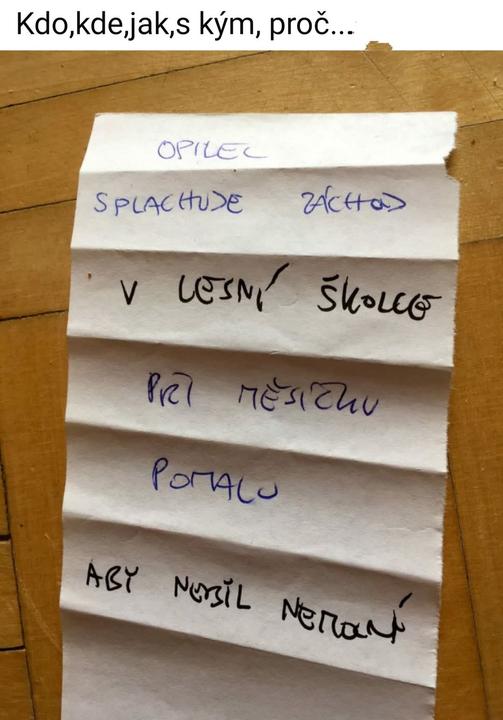 Kdo,kde,jak,s kým, proč...
OPILEC
SPLACHUJE ZÁCHOD
V LESNÍ ŠKOLCE
PŘI MĚSÍČKU
POMALU
ABY NEBYL NEMOCNÝ